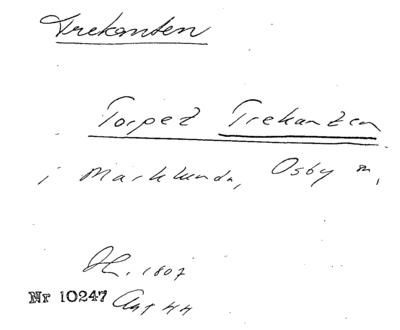 Trekanten
Torpet Trekanten
i Marklunda, Osby sn,
Hl. 1807
Nr 10247 Akt 44